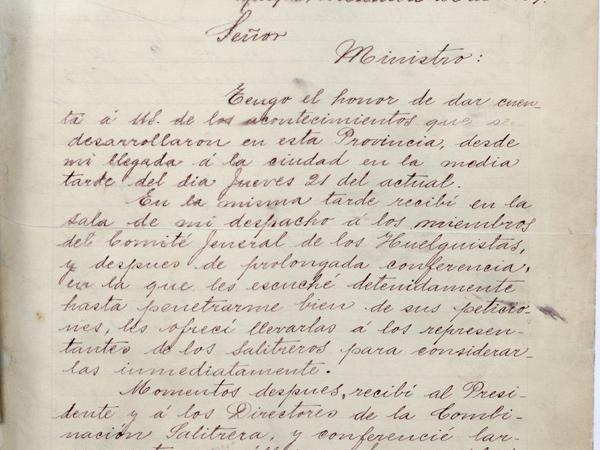 Señor
Ministro:
Tengo el honor de dar cuen-
ta á US. de los acontecimientos que se
desarrollaron en esta Provincia, desde
mi llegada á la ciudad en la media
tarde del dia Jueves 21 del actual.
En la misma tarde recibí en la
sala de mi despacho á los miembros
del Comité Jeneral de los Huelguistas,
y despues de prolongada conferencia,
en la que les escuché detenidamente
hasta penetrarme bien de sus peticio-
nes, les ofrecí llevarlas á los represen-
tantes de los Salitreros para considerar-
las inmediatamente.
Momentos despues, recibí al Presi-
dente y á los Directores de la Combi-
nación Salitrera, y conferencié lar-